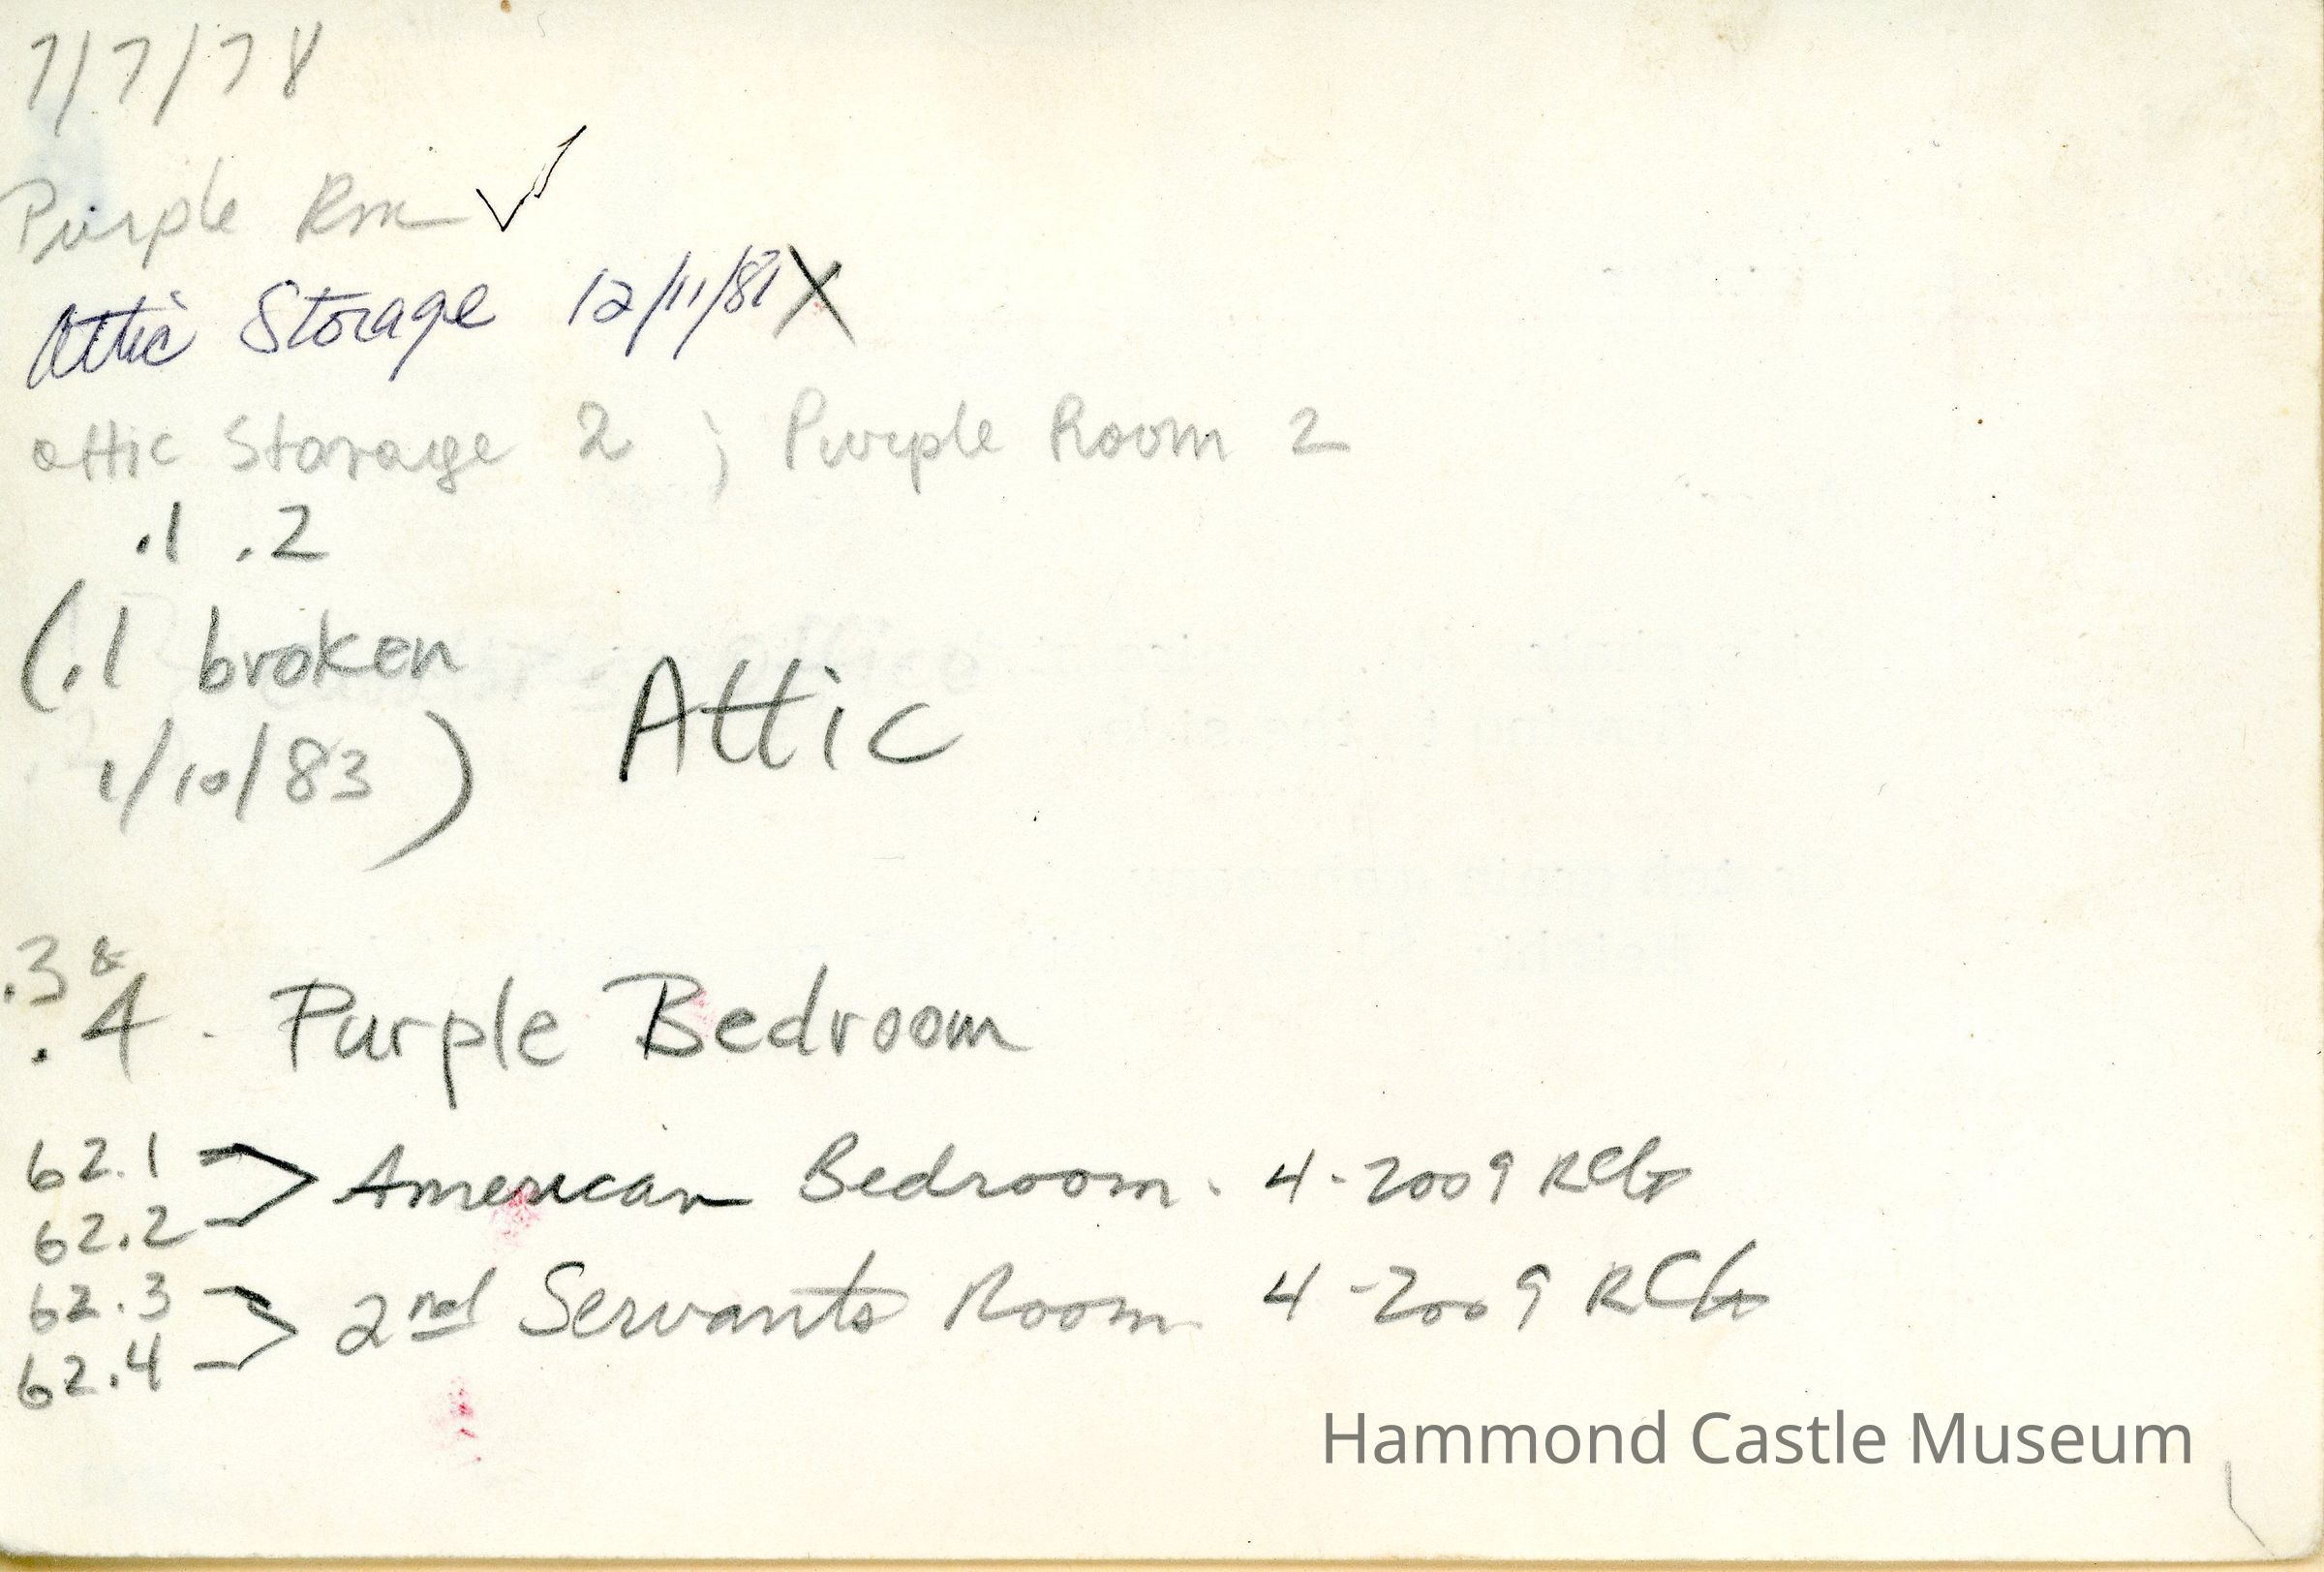 7/7/78
Purple Rm ✓
Attic Storage 12/11/81 X
attic Storage 2 ; Purple Room 2
.1 .2
(.1 broken
1/10/83)
Attic
.3 &
.4 - Purple Bedroom
62.1
62.2 > American Bedroom. 4-2009 RCG
62.3
62.4 > 2nd Servants Room 4-2009 RCG
Hammond Castle Museum